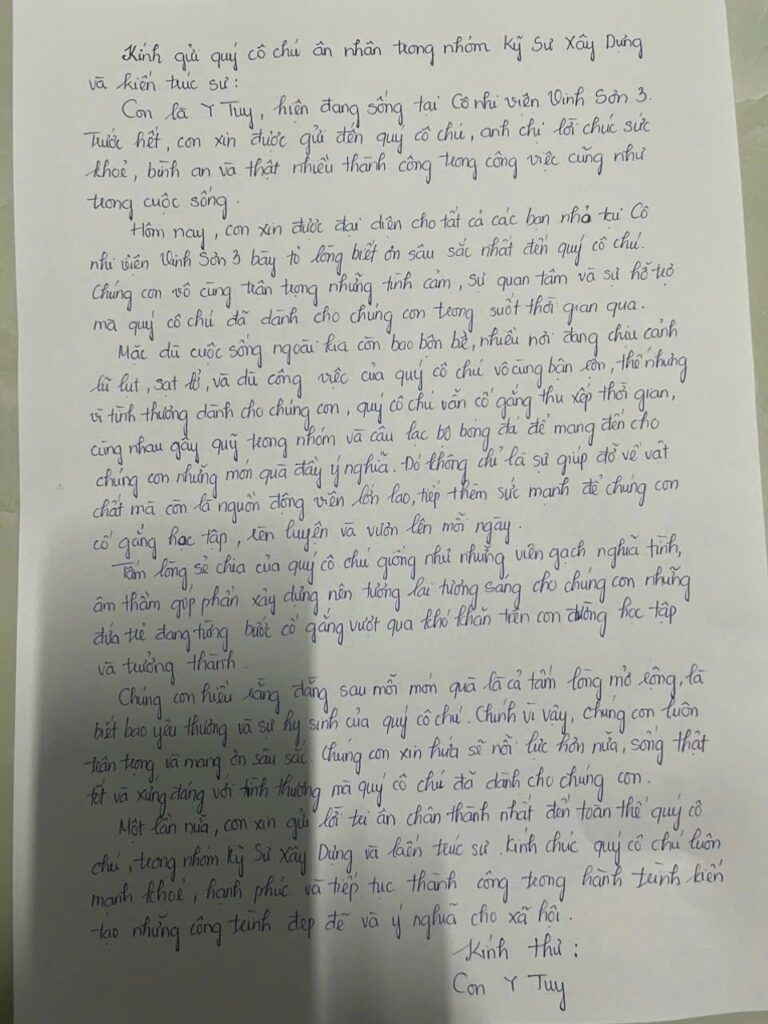 Kính gửi quý cô chú ân nhân trong nhóm Kỹ Sư Xây Dựng
và kiến trúc sư :
Con là Y Tuy, hiện đang sống tại Cô nhi viện Vinh Sơn 3.
Trước hết, con xin được gửi đến quý cô chú, anh chị lời chúc sức
khoẻ, bình an và thật nhiều thành công trong công việc cũng như
trong cuộc sống.
Hôm nay, con xin được đại diện cho tất cả các bạn nhỏ tại Cô
nhi viện Vinh Sơn 3 bày tỏ lòng biết ơn sâu sắc nhất đến quý cô chú.
Chúng con vô cùng trân trọng những tình cảm, sự quan tâm và sự hỗ trợ
mà quý cô chú đã dành cho chúng con trong suốt thời gian qua.
Mặc dù cuộc sống ngoài kia còn bao bộn bề, nhiều nơi đang chịu cảnh
lũ lụt, sạt lở, và dù công việc của quý cô chú vô cùng bận rộn, thế nhưng
vì tình thương dành cho chúng con, quý cô chú vẫn cố gắng thu xếp thời gian,
cùng nhau gây quỹ trong nhóm và câu lạc bộ bóng đá để mang đến cho
chúng con những món quà đầy ý nghĩa. Đó không chỉ là sự giúp đỡ về vật
chất mà còn là nguồn động viên lớn lao, tiếp thêm sức mạnh để chúng con
cố gắng học tập, rèn luyện và vươn lên mỗi ngày.
Tấm lòng sẻ chia của quý cô chú giống như những viên gạch nghĩa tình,
âm thầm góp phần xây dựng nên tương lai tương sáng cho chúng con những
đứa trẻ đang từng bước cố gắng vượt qua khó khăn trên con đường học tập
và trưởng thành.
Chúng con hiểu rằng đằng sau mỗi món quà là cả tấm lòng mở rộng, là
biết bao yêu thương và sự hy sinh của quý cô chú. Chính vì vậy, chúng con luôn
trân trọng và mang ơn sâu sắc. Chúng con xin hứa sẽ nỗ lực hơn nữa, sống thật
tốt và xứng đáng với tình thương mà quý cô chú đã dành cho chúng con.
Một lần nữa, con xin gửi lời tri ân chân thành nhất đến toàn thể quý cô
chú, trong nhóm Kỹ Sư Xây Dựng và kiến trúc sư. Kính chúc quý cô chú luôn
mạnh khoẻ, hạnh phúc và tiếp tục thành công trong hành trình kiến
tạo những công trình đẹp đẽ và ý nghĩa cho xã hội.
Kính thư :
Con Y Tuy